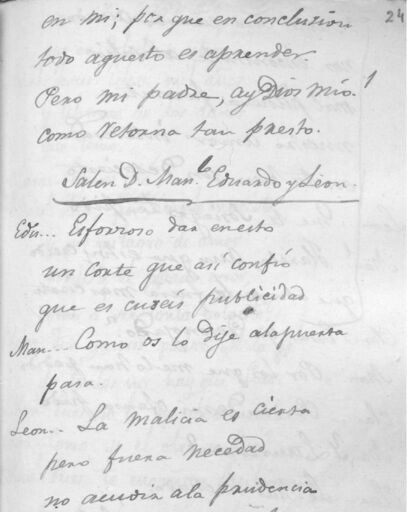 24
en mi; por que en conclusion
todo aquesto es aprender.
Pero mi padre, ay Dios mio!
como retorna tan presto.
Salen D. Man.l Eduardo y Leon.
Edu... Esforroso dar en esto
un Corte que asi confio
que es publicidad
Man... Como os lo dije a la puerta
pasa.
Leon... La malicia es cierta
pero fuera necedad
no acudir a la prudencia